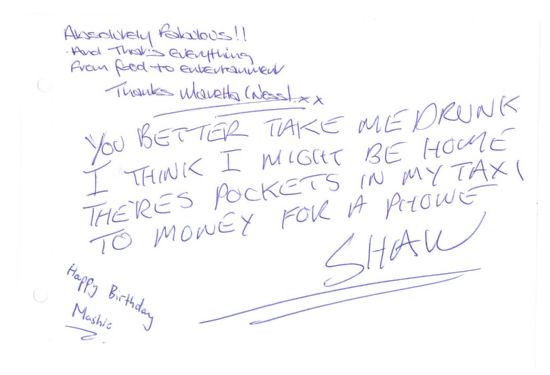 Absolutely Fabulous!!
And That's everything
From food to entertainment
Thanks Maretta (Ness) xx
YOU BETTER TAKE ME DRUNK
I THINK I MIGHT BE HOME
THERES POCKETS IN MY TAXI
TO MONEY FOR A PHONE
SHAW
Happy Birthday
Mashie